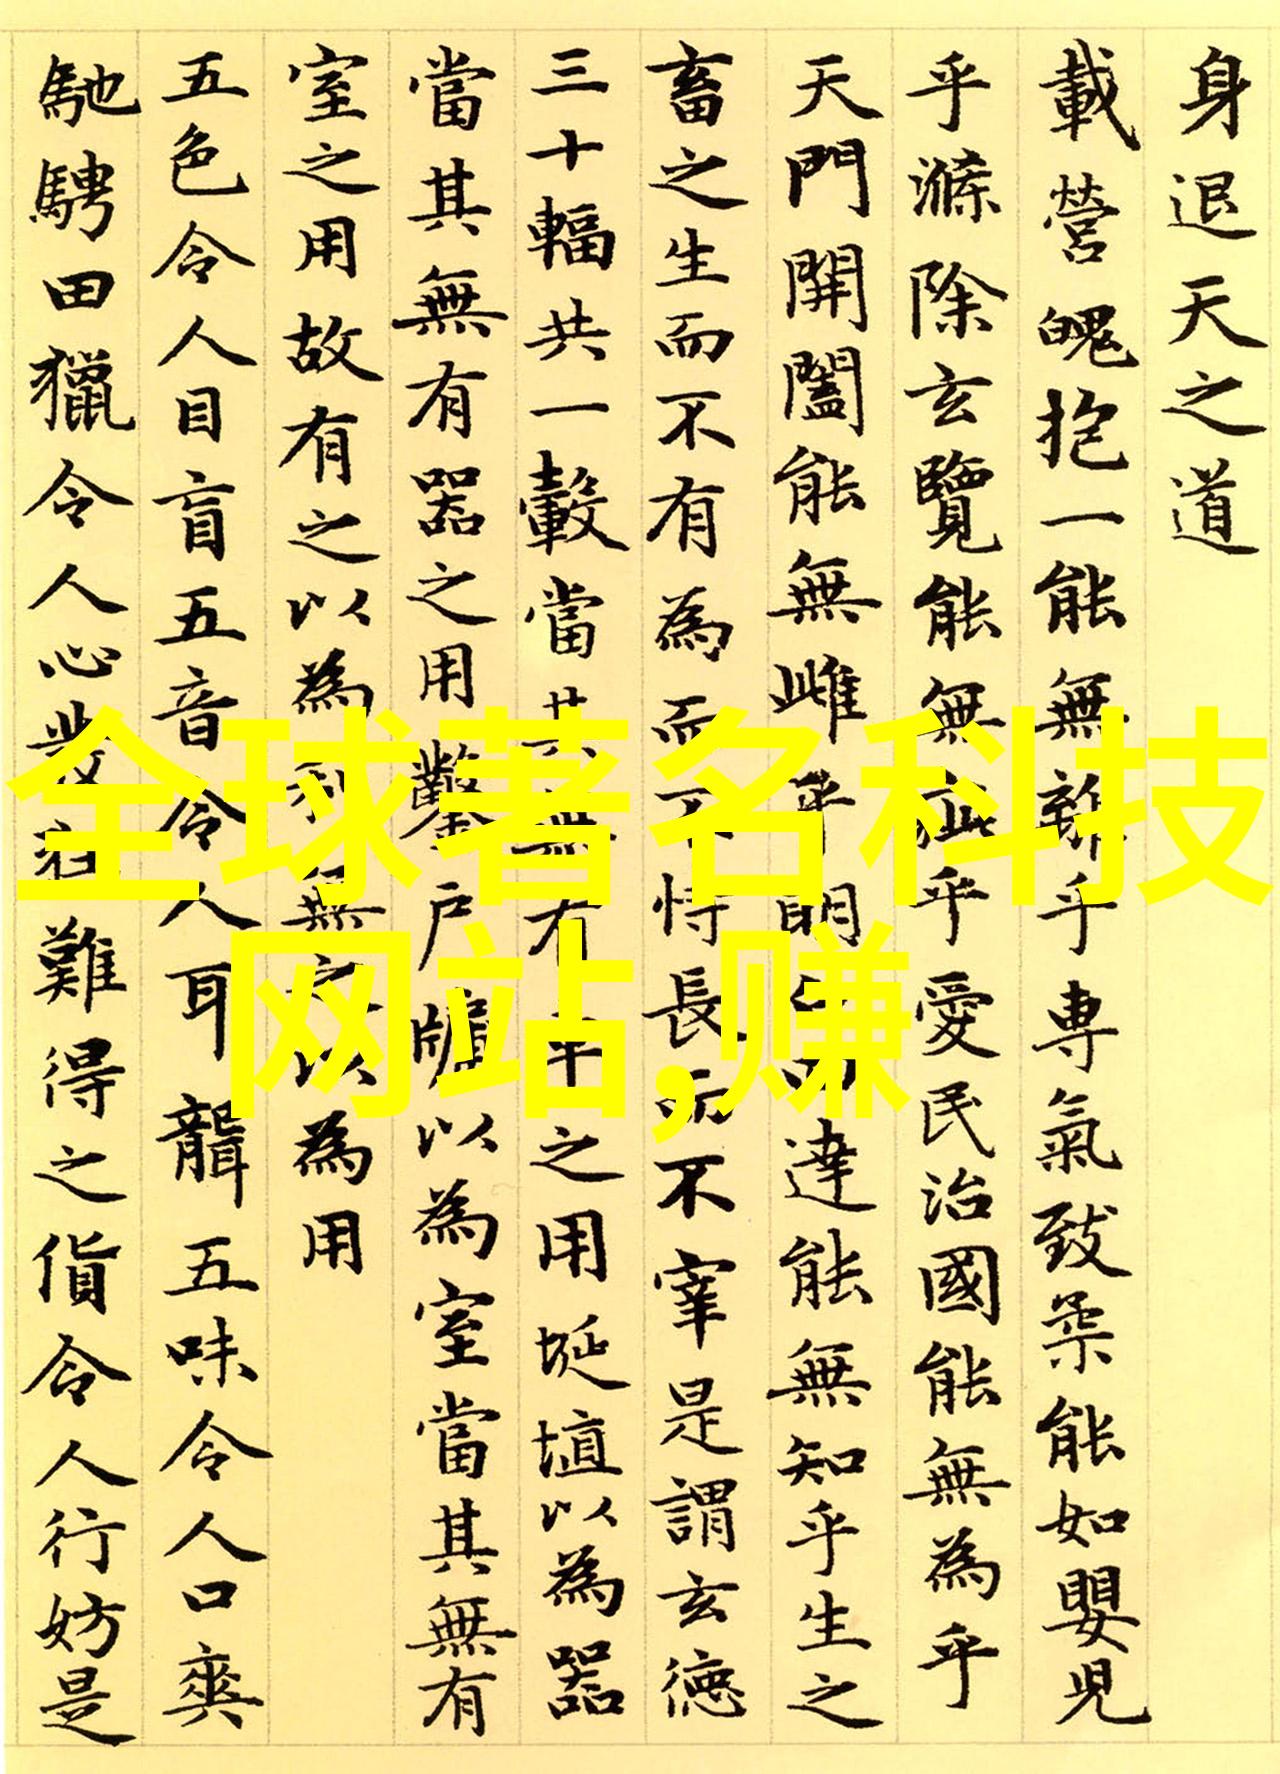 身退天之道
載營魄抱一能無離乎專氣致柔能如嬰兒
乎滌除玄覽能無疵乎愛民治國能無為乎
天門開闔能無雌乎明白四達能無知乎生之
畜之生而不有為而不恃長而不宰是謂玄德
三十輻共一轂當其無有車之用埏埴以為器
當其無有器之用鑿戶牖以為室當其無有
室之用故有之以為利無之以為用
五色令人目盲五音令人耳聾五味令人口爽
馳騁田獵令人心發狂難得之貨令人行妨是
全球著名科技
网站,赚